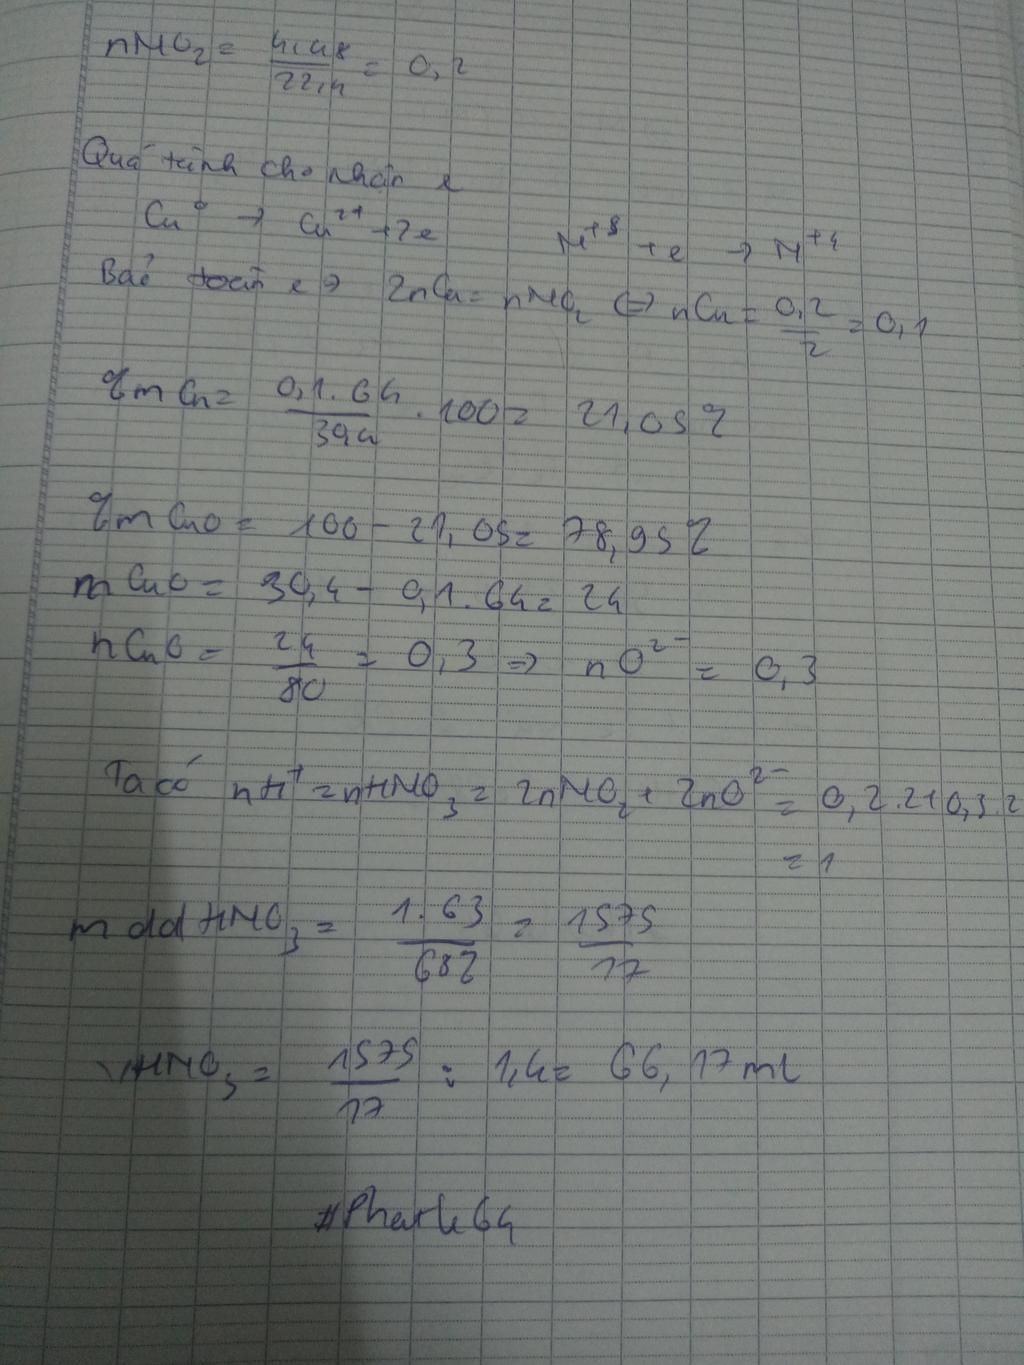 nNO2 = 4,48/22,4 = 0,2
Quá trình cho nhận e
Cu⁰ → Cu²⁺ + 2e N⁺⁵ + e → N⁺⁴
Bảo toàn e => 2nCu = nNO2 <=> nCu = 0,2/2 = 0,1
%m Cu = 0,1.64/30,4 .100 = 21,05%
%m CuO = 100 - 21,05 = 78,95%
m CuO = 30,4 - 0,1.64 = 24
nCuO = 24/80 = 0,3 => nO²⁻ = 0,3
Ta có nH⁺ = nHNO3 = 2nNO2 + 2nO²⁻ = 0,2.2+0,3.2
= 1
m dd HNO3 = 1.63/68% = 1575/17
VHNO3 = 1575/17 : 1,4 = 66,17 ml